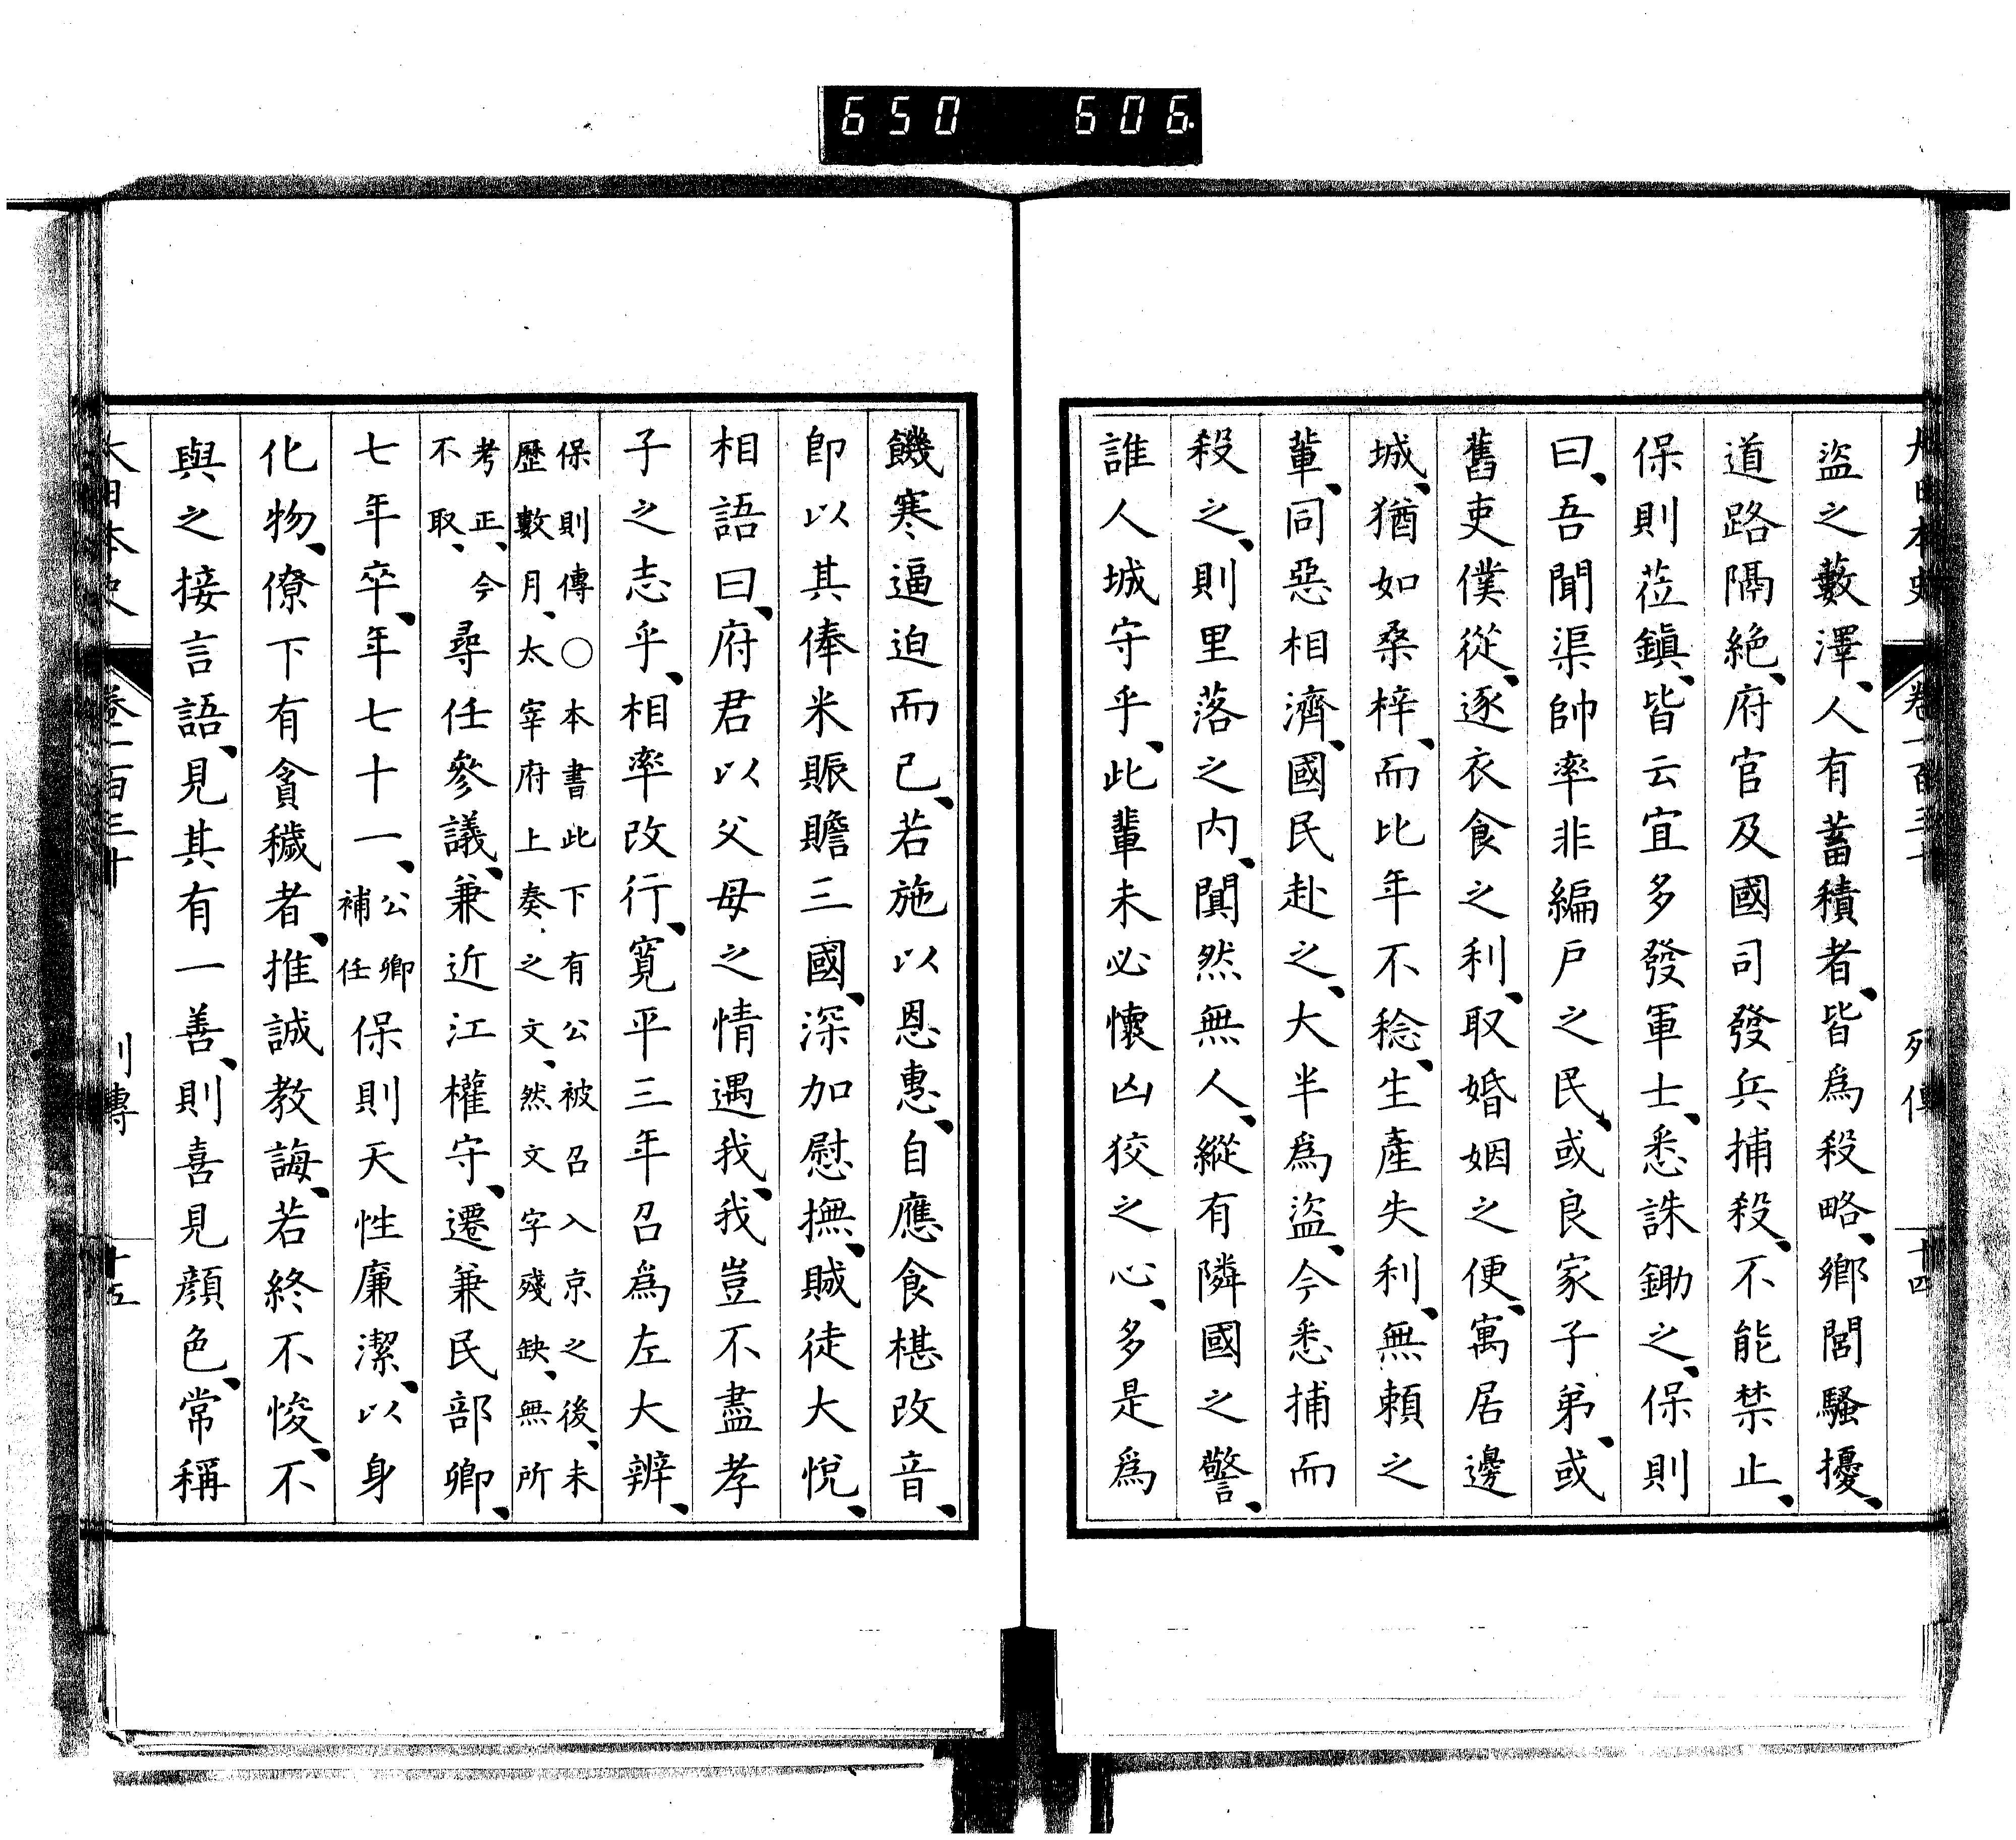 650 606
大日本史 卷一百三十 列傳 十四
盜之藪澤、人有蓄積者、皆爲殺略、鄉閭騷擾、
道路隔絶、府官及國司發兵捕殺、不能禁止、
保則莅鎭、皆云宜多發軍士、悉誅鋤之、保則
曰、吾聞渠帥率非編戶之民、或良家子弟、或
舊吏僕從、逐衣食之利、取婚姻之便、寓居邊
城、猶如桑梓、而比年不稔、生產失利、無賴之
輩、同惡相濟、國民赴之、大半爲盜、今悉捕而
殺之、則里落之內、闃然無人、縱有隣國之警、
誰人城守乎、此輩未必懷凶狡之心、多是爲
饑寒逼迫而已、若施以恩惠、自應食椹改音、
卽以其俸米賑贍三國、深加慰撫、賊徒大悅、
相語曰、府君以父母之情遇我、我豈不盡孝
子之志乎、相率改行、寬平三年召爲左大辨、
保則傳○本書此下有公被召入京之後、未
歷數月、太宰府上奏、之文、然文字殘缺、無所
考正、今
不取、
尋任參議、兼近江權守、遷兼民部卿、
七年卒、年七十一、公卿
補任保則天性廉潔、以身
化物、僚下有貪穢者、推誠教誨、若終不悛、不
與之接言語、見其有一善、則喜見顏色、常稱
大日本史 卷一百三十 列傳 十五